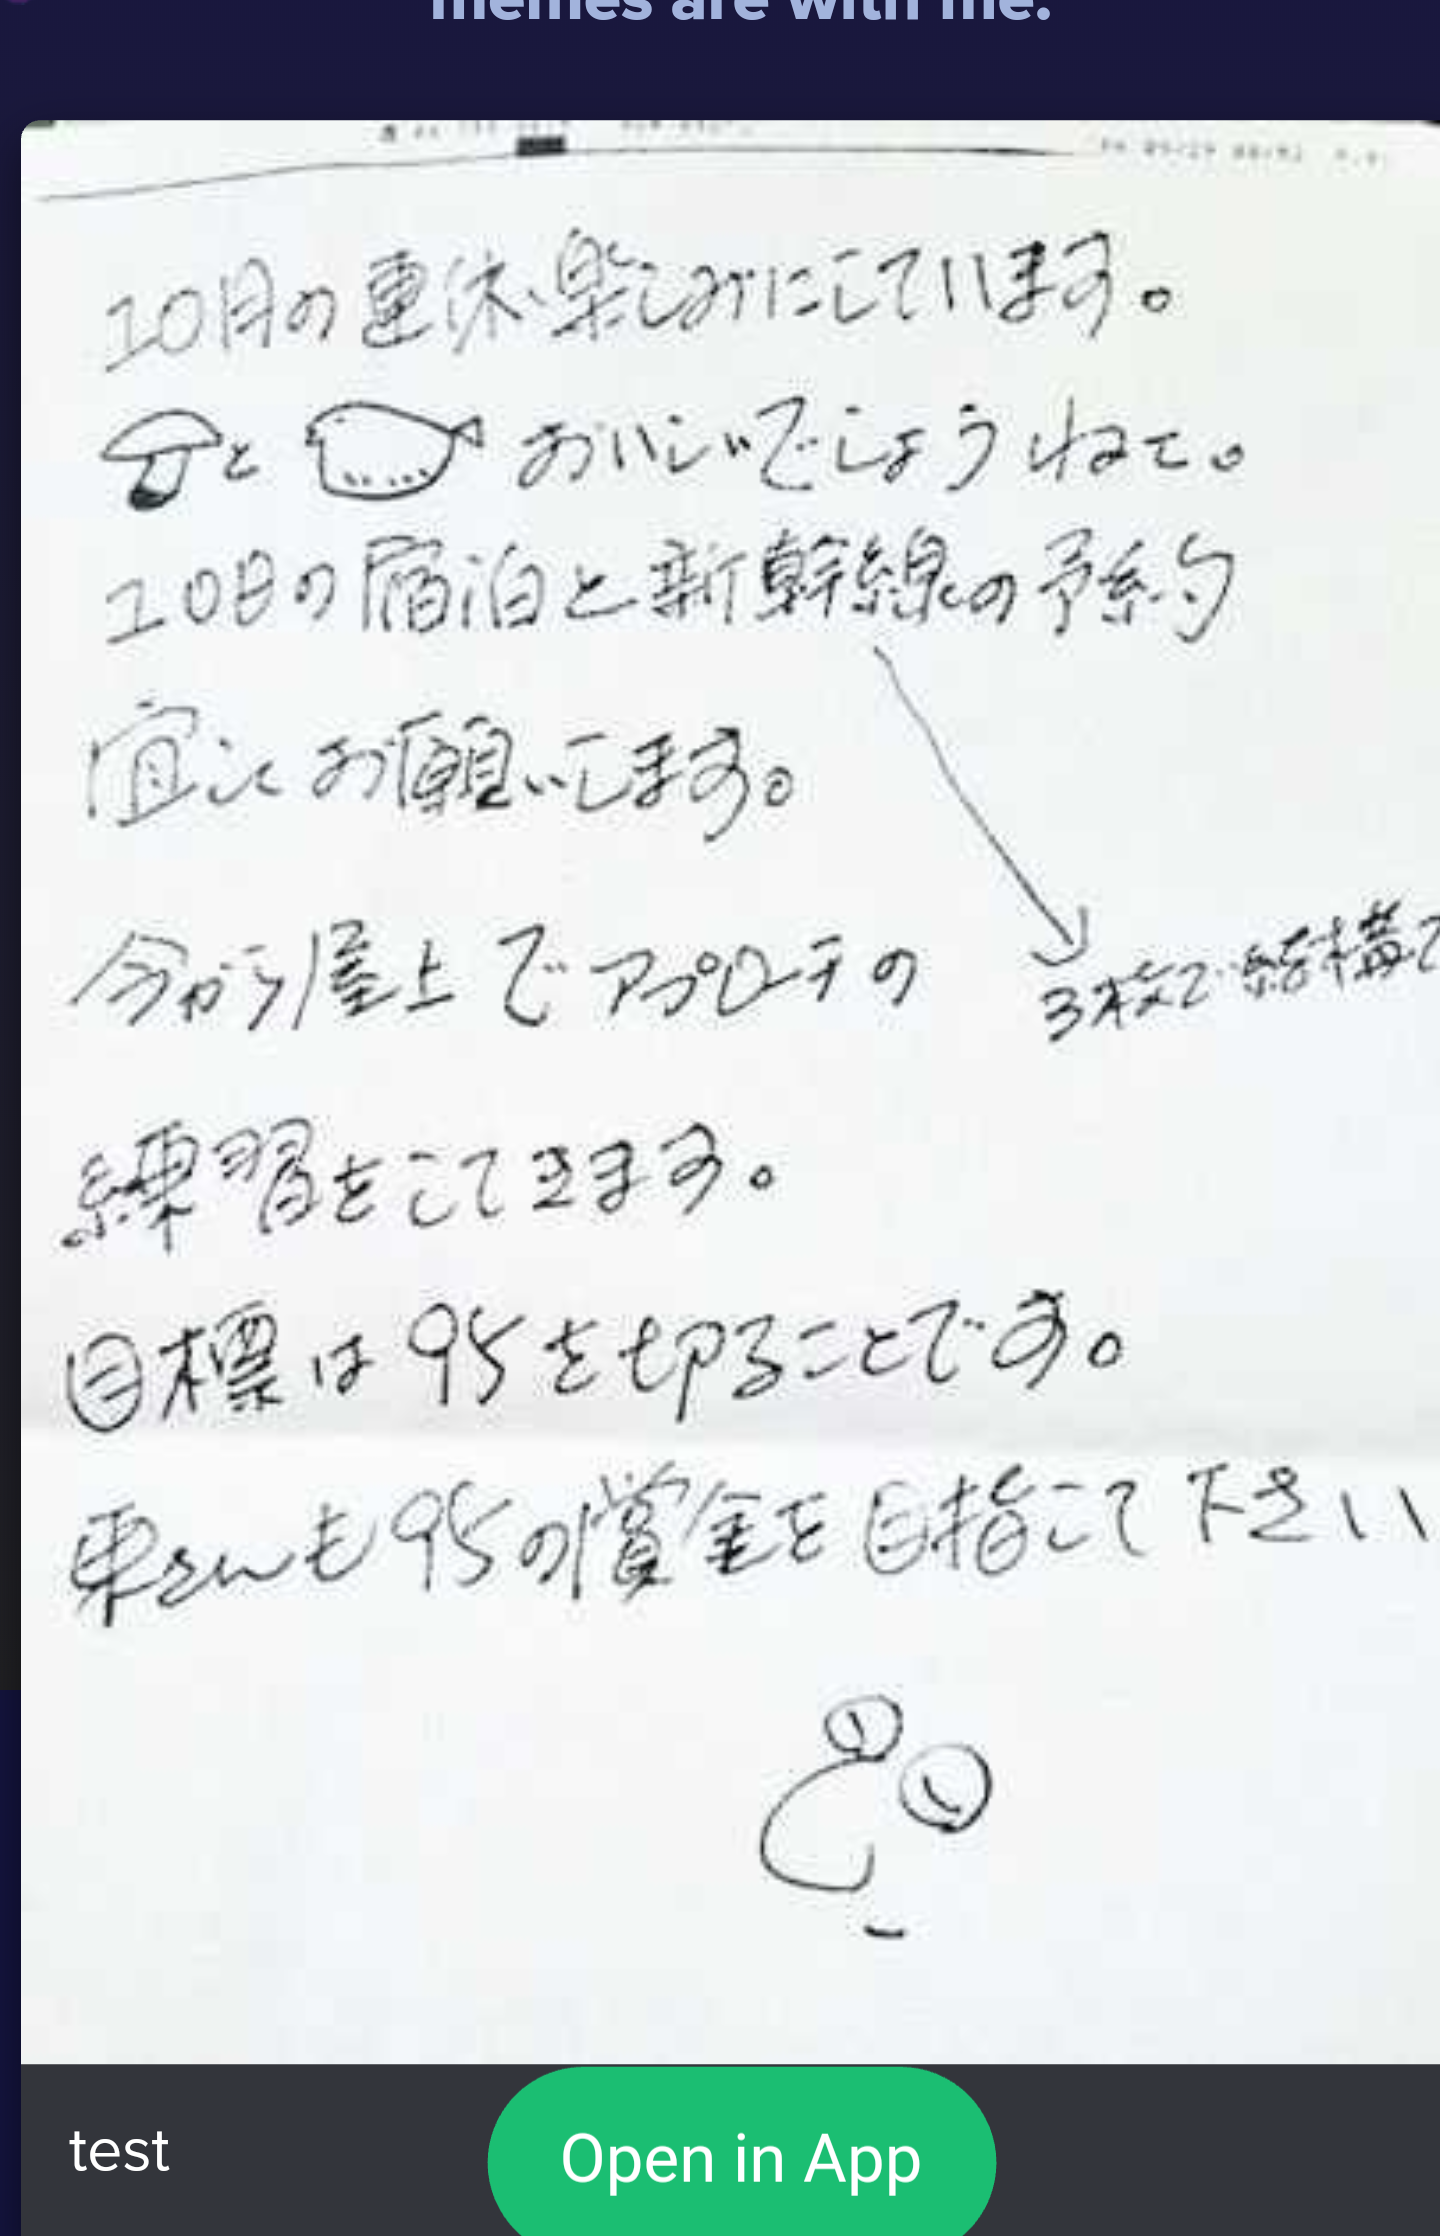 memes are with me.
10月の連休、楽しみにしています。
と おいしいでしょうねェ。
10日の宿泊と新幹線の予約
宜しくお願いします。
3枚で結構で
今から屋上でアプローチの
練習をしてきます。
目標は95を切ることです。
東さんも95の賞金を目指して下さい
test
Open in App